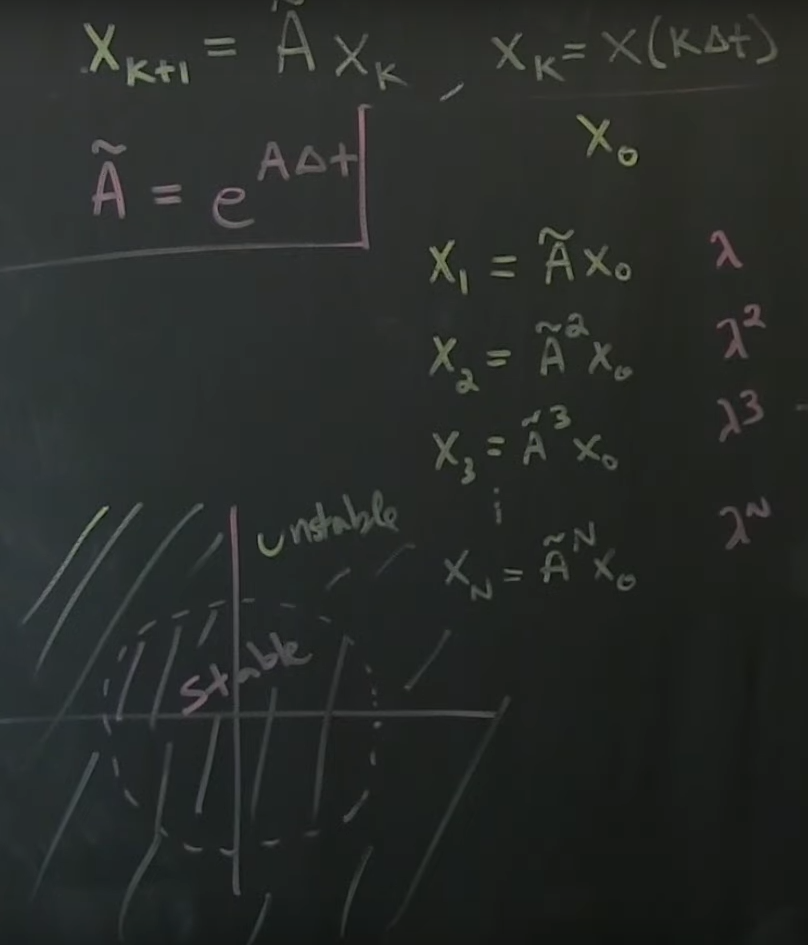 X_{K+1} = Ã X_K , X_K = X(KΔt)
X_0
Ã = e^{AΔt}
X_1 = Ã X_0 λ
X_2 = Ã^2 X_0 λ^2
X_3 = Ã^3 X_0 λ^3
⋮
X_N = Ã^N X_0 λ^N
unstable
stable